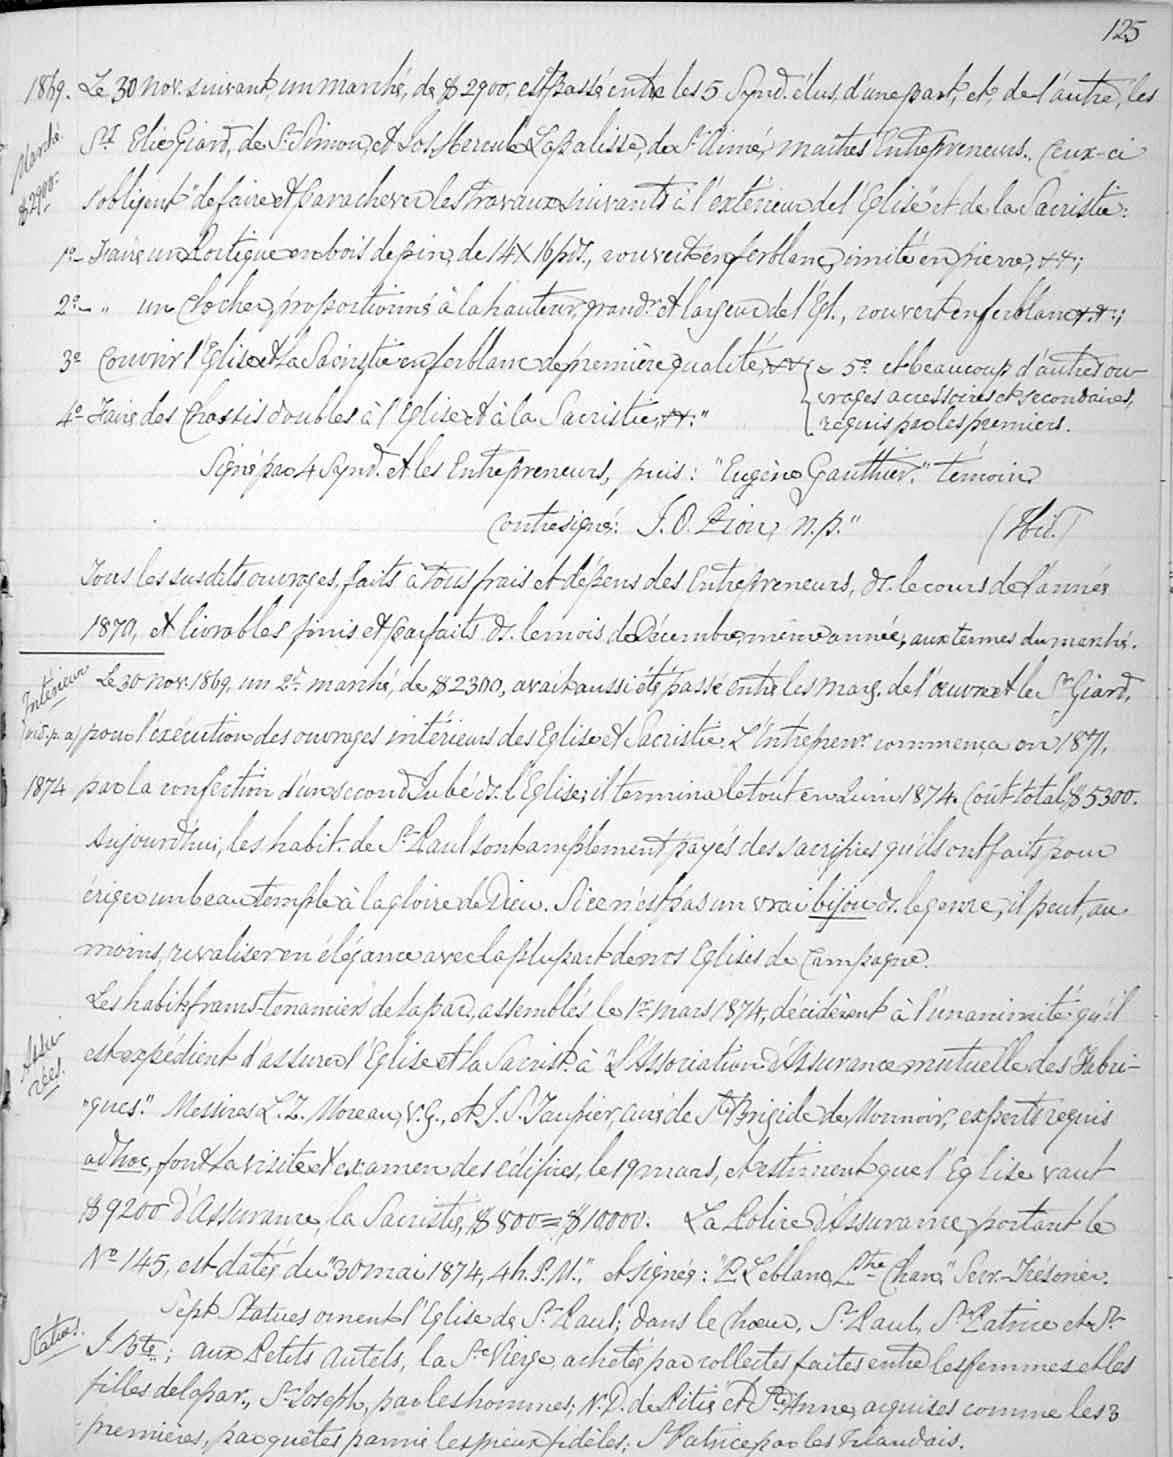 125
1869. Le 30 nov. suivant, un marché, de $2900, est passé entre les 5 Synd. élus, d'une part, et, de l'autre, les
Marché. $2900. Srs Elie Giard, de St Simon, et Jos. Hercule Lapalisse, de St Aimé, maîtres Entrepreneurs. Ceux-ci
s'obligent "de faire et parachever les travaux suivants à l'extérieur de l'Eglise et de la Sacristie:
1o- Faire un Portique en bois de pin, de 14 X 16 pds., couvert en ferblanc, imité en pierre, &&;
2o- " un Clocher, proportionné à la hauteur, grandr et largeur de l'Egl., couvert en ferblanc, &&;
3o Couvrir l'Eglise et la Sacristie en ferblanc de première qualité, && { - 5o et beaucoup d'autres ou-
vrages accessoires et secondaires,
4o- Faire des Chassis doubles à l'Eglise et à la Sacristie, &&." requis par les premiers.
Signé par 4 Synd. et les Entrepreneurs, puis: "Eugène Gauthier." témoin
Contresigné: J. O. Dion, N.P." (Ibid.)
Tous les susdits ouvrages, faits à tous frais et dépens des Entrepreneurs, ds. le cours de l'année
1870, et livrables finis et parfaits ds. le mois de Décembre, même année, aux termes du marché.
Intérieur Le 30 nov. 1869, un 2d marché, de $2300, avait aussi été passé entre les marg. de l'œuvre et le Sr Giard,
(vid. p. a) pour l'exécution des ouvrages intérieurs des Eglise et Sacristie. L'Entreprenr commença en 1871,
1874 par la confection d'un second Jubé ds. l'Eglise; il termina le tout en Juin 1874. Coût total, $5300.
Aujourd'hui, les habit. de St Paul sont amplement payés des sacrifices qu'ils ont faits pour
ériger un beau temple à la gloire de Dieu. Si ce n'est pas un vrai bijou ds. le genre, il peut, au
moins, rivaliser en élégance avec la plupart de nos Eglises de Campagne.
Les habit. francs-tenanciers de la par., assemblés le 1er mars 1874, décidèrent à l'unanimité qu'il
Assurées. est expédient d'assurer l'Eglise et la Sacrist. à "L'Association d'Assurance mutuelle des Fabri-
"ques." Messires L. Z. Moreau, V.G., et J. S. Taupier, curé de Ste Brigide de Monnoir, experts requis
ad hoc, font la visite et examen des édifices, le 19 mars, et estiment que l'Eglise vaut
$9200 d'Assurance, la Sacristie, $800 = $10000. La Police d'Assurance, portant le
No 145, est datée du "30 mai 1874, 4 h. P.M.," et signée: "P. Leblanc, Ptre Chan," Secr.-Trésorier.
Sept Statues ornent l'Eglise de St Paul; dans le Chœur, St Paul, St Patrice et St
Statues. J. Bte; aux Petits Autels, la Ste Vierge achetée par collectes faites entre les femmes et les
filles de la par., St Joseph, par les hommes; N. D. de Pitié et Ste Anne, acquises comme les 3
premières, par quêtes parmi les pieux fidèles; St Patrice par les Irlandais.